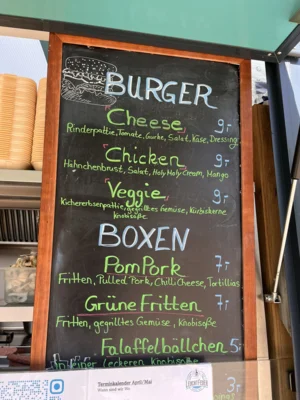 BURGER
Cheese 9,-
Rinderpattie, Tomate, Gurke, Salat, Käse, Dressing
Chicken 9,-
Hähnchenbrust, Salat, Holy Holy Cream, Mango
Veggie 9,-
Kichererbsenpattie, gegrilltes Gemüse, Kürbiskerne
Knobisoße
BOXEN
PomPork 7,-
Fritten, Pulled Pork, Chili Cheese, Tortillias
Grüne Fritten 7,-
Fritten, gegrilltes Gemüse, Knobisoße
Falaffelbällchen 5,-
leckeren Knobisoße
3,-
Terminkalender April/Mai